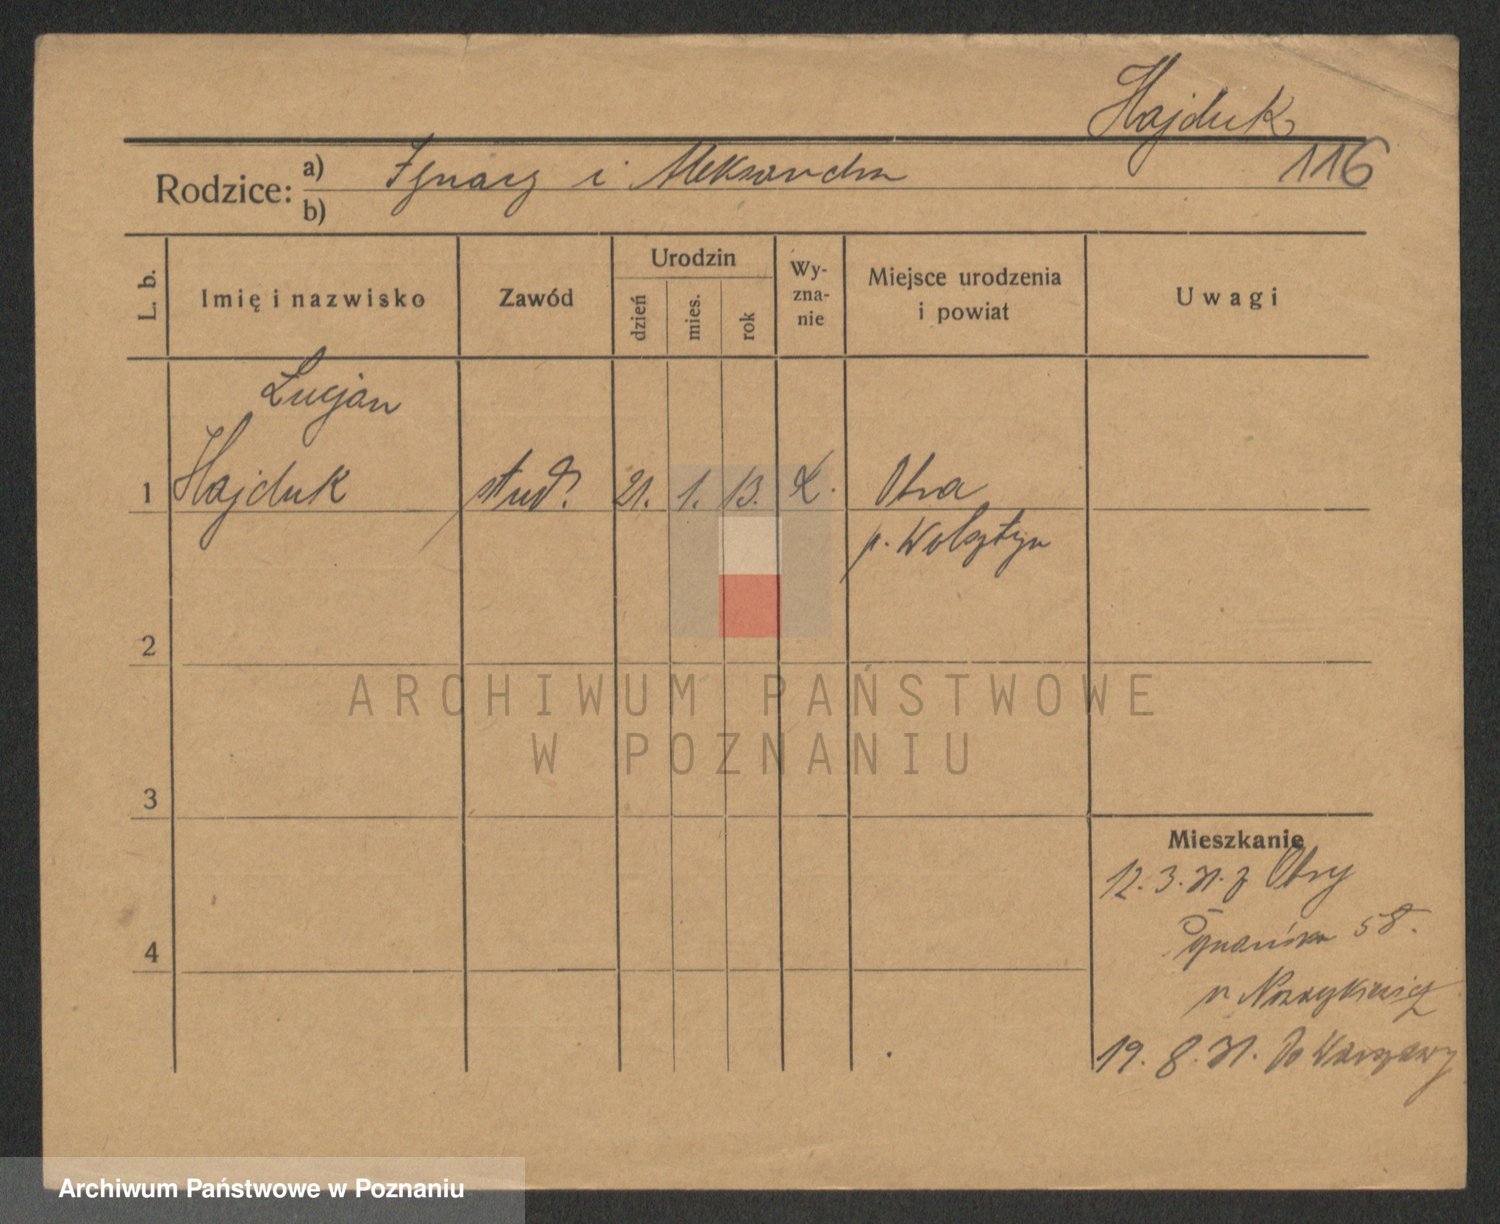 Hajduk
116
Rodzice: a) Ignacy i Aleksandra
b)
L. b.
Imię i nazwisko
Zawód
Urodzin
dzień
mies.
rok
Wy-
zna-
nie
Miejsce urodzenia
i powiat
Uwagi
Lucjan
1 Hajduk stud. 21. 1. 13. k. Obra
p. Wolsztyn
2
3
4
Mieszkanie
12. 3. 31. z Obry
58.
19. 8. 31. Do Warszawy
ARCHIWUM PAŃSTWOWE
W POZNANIU
Archiwum Państwowe w Poznaniu